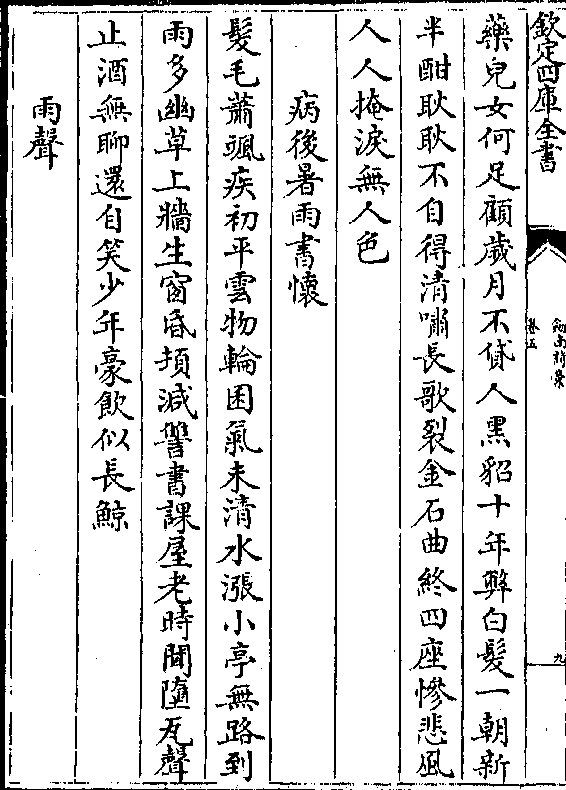 欽定四庫全書
藥兒女何足顧歲月不貸人黑貂十年弊白髮一朝新
半酣耿耿不自得清嘯長歌裂金石曲終四座慘悲風
人人掩淚無人色
病後暑雨書懷
髮毛蕭颯疾初平雲物輪囷氣未清水漲小亭無路到
雨多幽草上牆生窗昏頓減讐書課屋老時聞墮瓦聲
止酒無聊還自笑少年豪飲似長鯨
雨聲
劒南詩稾
卷五
九